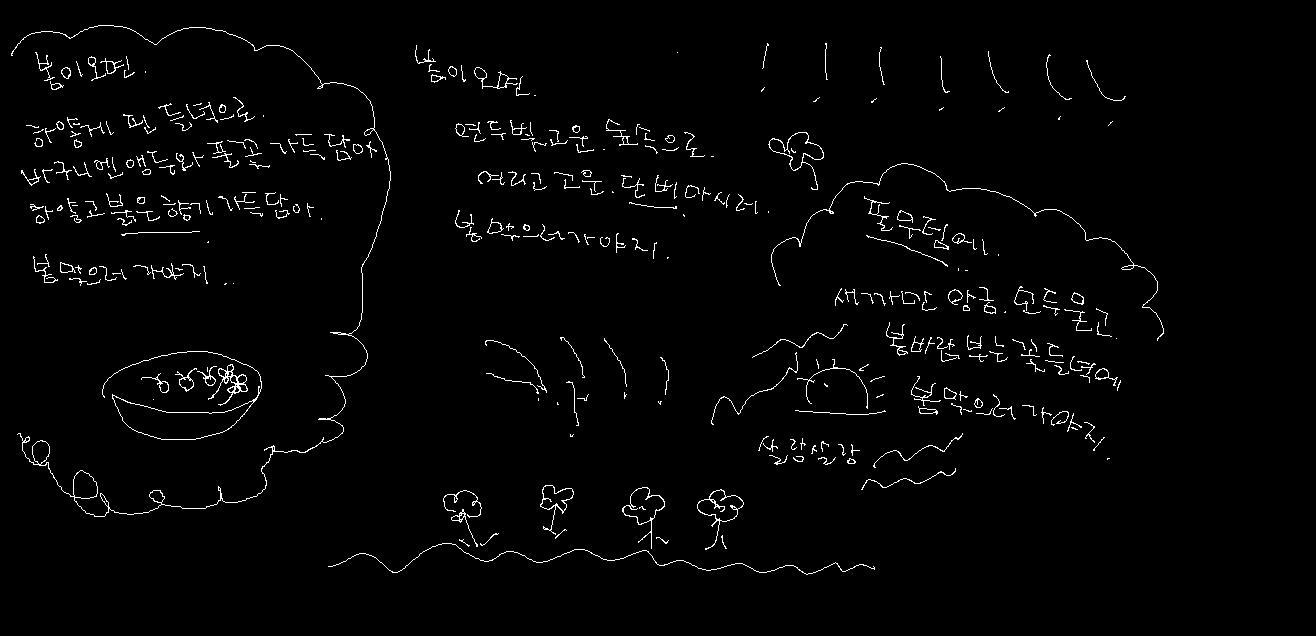 봄이오면.
하얗게 핀 들녘으로.
바구니엔 앵두와 풀꽃 가득 담아.
하얗고 붉은 향기 가득담아.
봄 맞으러 가야지..
봄이오면.
연두빛 고운. 숲속으로.
어리고 고운. 단비 마시러.
봄 맞으러가야지.
풀무덤에..
새까만 앙금. 모두묻고.
봄바람 부는 꽃들녘에
봄 맞으러 가야지.
살랑살랑